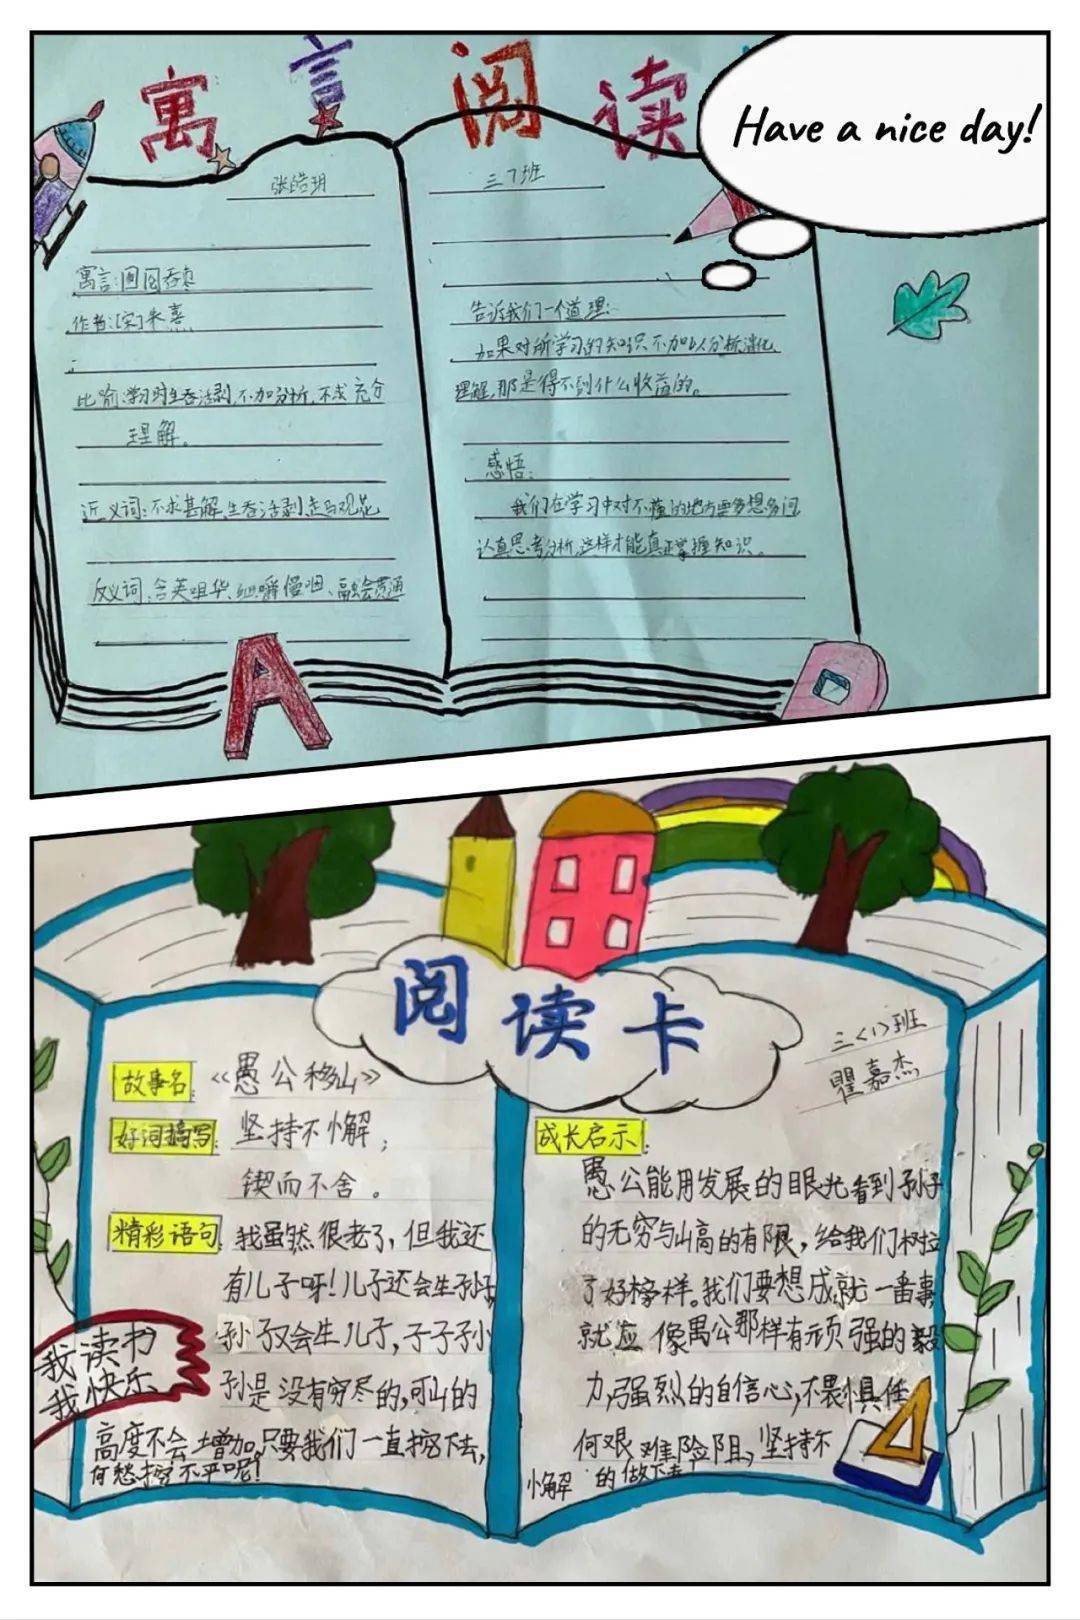 寓言阅读
Have a nice day!
张皓玥
三7班
寓言:囫囵吞枣
作者:[宋]朱熹
比喻:学习时生吞活剥,不加分析,不求充分
理解。
近义词:不求甚解、生吞活剥、走马观花
反义词:含英咀华、细嚼慢咽、融会贯通
告诉我们一个道理:
如果对所学习的知识不加以分析消化
理解,那是得不到什么收益的。
感悟:
我们在学习中对不懂的地方要多想多问
认真思考分析,这样才能真正掌握知识。
A
阅读卡
三<1>班
瞿嘉杰
故事名:《愚公移山》
好词摘写:坚持不懈;
锲而不舍。
精彩语句:我虽然很老了,但我还
有儿子呀!儿子还会生孙子,
孙子又会生儿子,子子孙
孙是没有穷尽的,可山的
高度不会增加,只要我们一直挖下去,
何愁挖不平呢!
我读书
我快乐
成长启示:
愚公能用发展的眼光看到孙子
的无穷与山高的有限,给我们树立
了好榜样。我们要想成就一番事
就应像愚公那样有顽强的毅
力,强烈的自信心,不畏惧任
何艰难险阻,坚持不
懈的做下去!